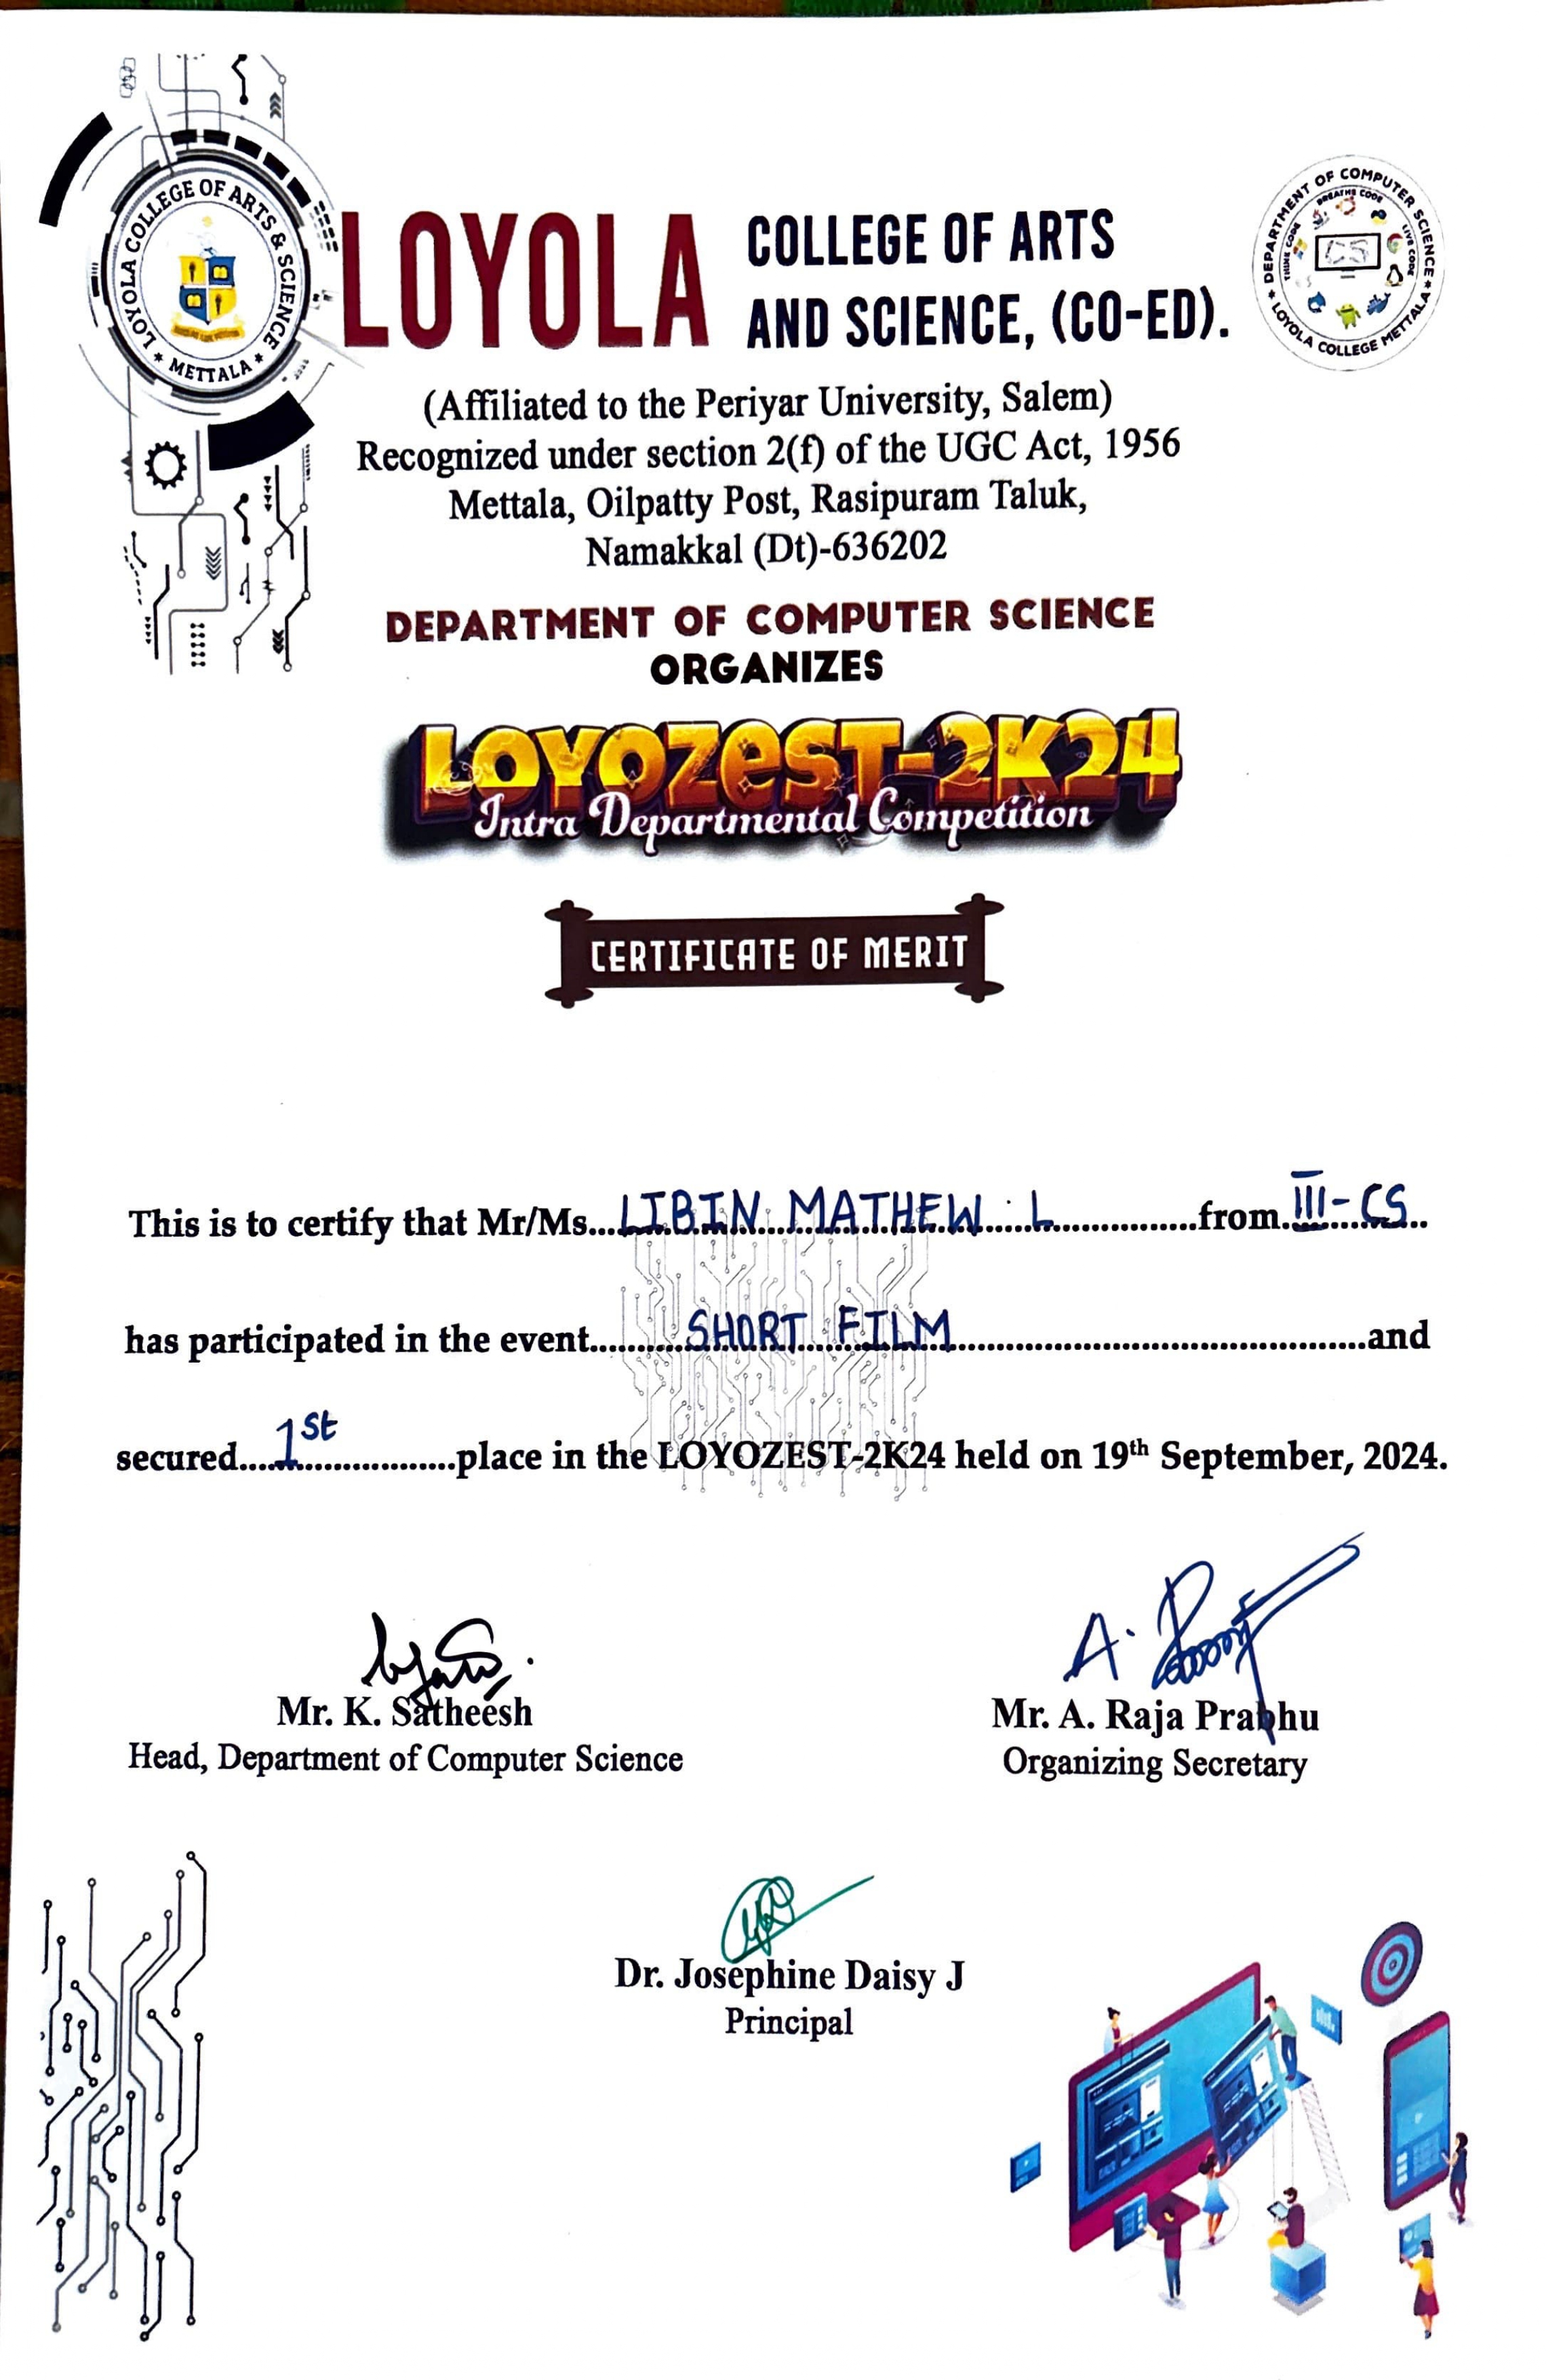 LOYOLA COLLEGE OF ARTS & SCIENCE
* METTALA *
LOYOLA COLLEGE OF ARTS
AND SCIENCE, (CO-ED).
DEPARTMENT OF COMPUTER SCIENCE
* LOYOLA COLLEGE METTALA *
THINK CODE BREATHE CODE LIVE CODE
CS
(Affiliated to the Periyar University, Salem)
Recognized under section 2(f) of the UGC Act, 1956
Mettala, Oilpatty Post, Rasipuram Taluk,
Namakkal (Dt)-636202
DEPARTMENT OF COMPUTER SCIENCE
ORGANIZES
LOYOZEST-2K24
Intra Departmental Competition
CERTIFICATE OF MERIT
This is to certify that Mr/Ms...LIBIN MATHEW . L..............from.III-CS..
has participated in the event..........SHORT FILM..........................................and
secured....1st................place in the LOYOZEST-2K24 held on 19th September, 2024.
Mr. K. Satheesh
Head, Department of Computer Science
A.
Mr. A. Raja Prabhu
Organizing Secretary
Dr. Josephine Daisy J
Principal